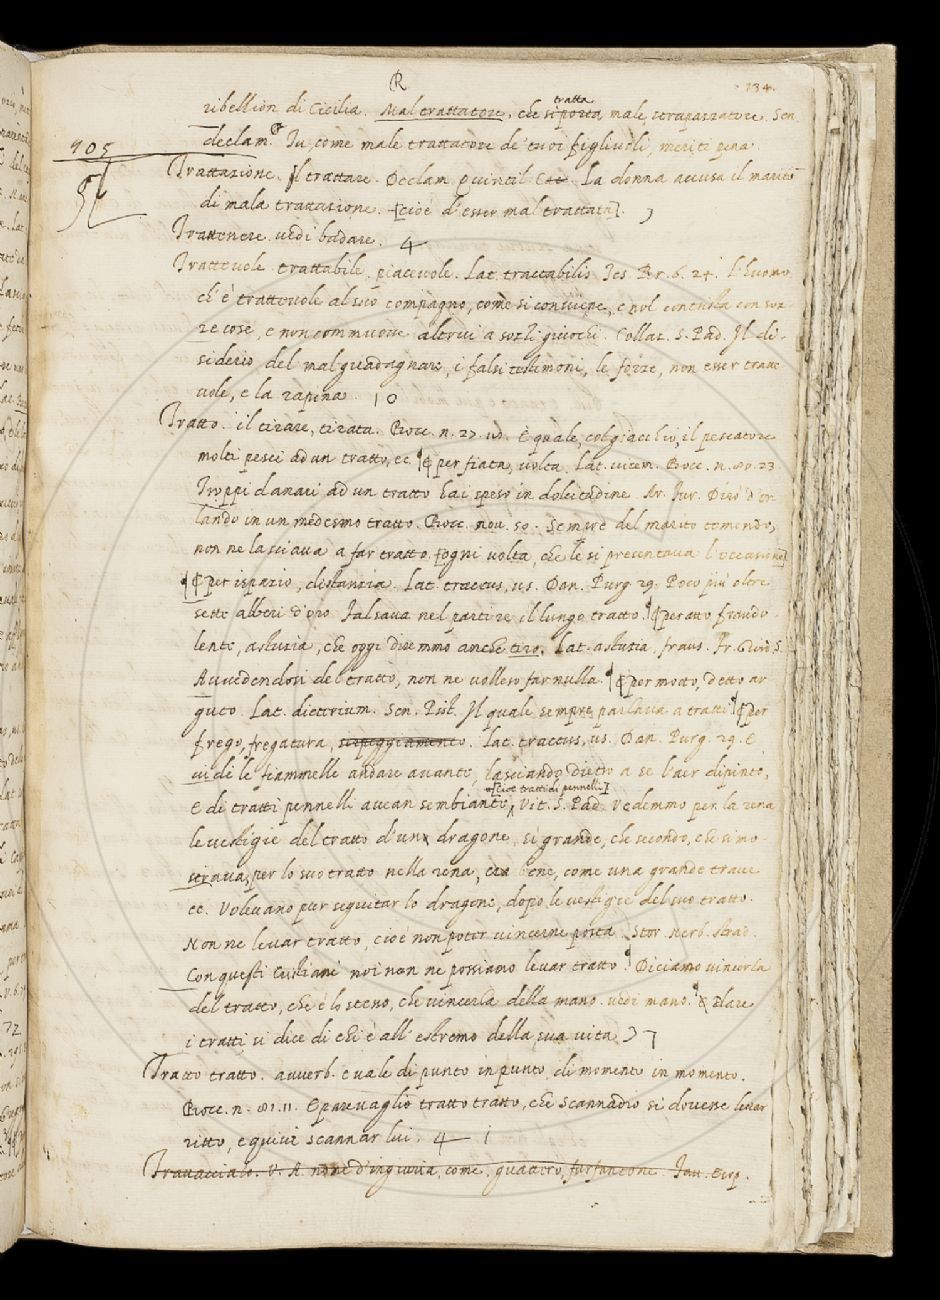 R
134.
ribellion di Cicilia. Maltrattatore, che tratta male, strapazzatore. Sen.
declam. Tu, come male trattatore de' tuoi figliuoli, meriti pena.
905
Trattazione. Il trattare. Declam. Quintil. C. La donna accusa il marito
di mala trattazione. [cioè d'esser mal trattata].
Trattenere vedi badare. 4
Trattevole trattabile, piacevole. Lat. tractabilis. Tes. Br. 6. 24. L'huomo,
ch'è trattevole al suo compagno, come si conviene, e nol contrista con soz-
ze cose, e non commuove altrui a sozzi giuochi. Collaz. S. Pad. Il di-
siderio del mal guadagnare, i falsi testimoni, le forze, non esser tratte-
vole, e la rapina. 10
Tratto. il tirare, tirata. Bocc. n. 27. E quale, col giacchio, il pescatore
molti pesci ad un tratto, ec. per fiata, volta. Lat. vicem. Bocc. n. 80. 23
Troppi danari ad un tratto hai spesi in dolcitudine. Ar. Fur. Dirò d'Or-
lando in un medesmo tratto. Bocc. nov. 50. Sempre del marito temendo,
non ne lasciava a far tratto, [ogni volta, che le si presentava l'occasione]
per ispazio, distanzia. Lat. tractus, us. Dan. Purg. 29. Poco più oltre
sette alberi d'oro Falsava nel parere il lungo tratto. per atto fraudo-
lente, astuzia, che oggi diremmo anche tiro. Lat. astutia, fraus. Fr. Giord. S.
Avvedendosi del tratto, non ne vollero far nulla. per motto, detto ar-
guto. Lat. dicterium. Sen. Pist. Il quale sempre parlava a tratti. per
frego, fregatura, serpeggiamento. Lat. tractus, us. Dan. Purg. 29. E
vidi le fiammelle andare avante, lasciando dietro a se l'aer dipinto,
[cioè tratti di pennelli]
E di tratti pennelli avean sembiante, Vit. S. Pad. Vedemmo per la rena
le vestigie del tratto d'un dragone, si grande, che secondo, che si mo-
strava, per lo suo tratto nella rena, era bene, come una grande trave
ec. Volevano pur seguitar lo dragone, dopo le vestigie del suo tratto.
Non ne levar tratto, cioè non poter vincerne posta. Stor. Nerb. Strad.
Con questi Cristiani noi non ne possiamo levar tratto. Diciamo vincerla
del tratto, che è lo stesso, che vincerla della mano. vedi mano. Dare
i tratti si dice di chi è all'estremo della sua vita. 7
Tratto tratto. avverb. e vale di punto in punto, di momento in momento.
Bocc. n. 81. 11. E parevagli tratto tratto, che Scannadio si dovesse levar
ritto, e quivi scannar lui. 4 1
Travacciolo. V. A. nome d'ingiuria, come, guattero, furfantone. Tav.